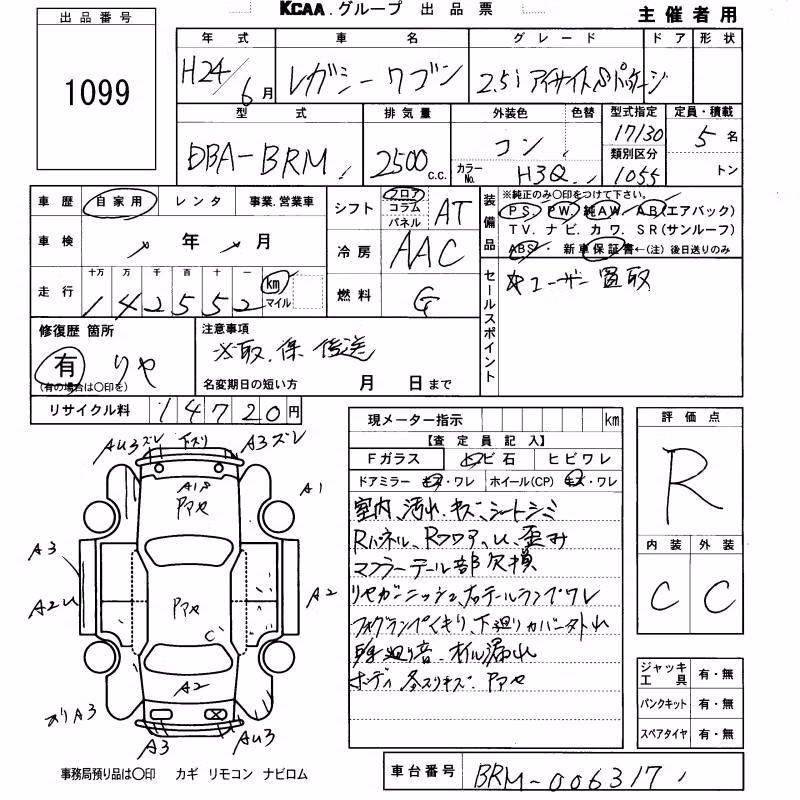 KCAA.グループ 出品票
主催者用
出品番号
1099
年式 車名 グレード ドア 形状
H24/6月 レガシーワゴン 2.5i アイサイトSパッケージ
型式 排気量 外装色 色替 型式指定 定員・積載
DBA-BRM 2500c.c. コン 17130 5名
カラーNo. H3Q 類別区分 1055 トン
車歴 自家用 レンタ 事業.営業車
シフト フロア コラム パネル AT
装備品 ※純正のみ〇印をつけて下さい。
PS. PW. 純AW. AB(エアバック)
TV. ナビ. カワ. SR(サンルーフ)
ABS. 新車保証書←(注)後日送りのみ
車検 年 月
冷房 AAC
走行 十万 万 千 百 十 一
142552 km マイル
燃料 G
セールスポイント ユーザー買取
修復歴 箇所
有 リヤ
(有の場合は〇印を)
注意事項
※取.保 後送
名変期日の短い方 月 日まで
リサイクル料 14720円
現メーター指示 km
【査定員記入】
Fガラス トビ石 ヒビワレ
ドアミラー キズ・ワレ ホイール(CP) キズ・ワレ
室内、汚れ、キズ、シートシミ
Rパネル、Rフロア、U、歪み
マフラーテール部欠損
リヤガーニッシュ、右テールランプワレ
フォグランプくもり、下廻りカバー外れ
廻り音、オイル漏れ
ボディ 各スリキズ、PアセU
評価点
R
内装 外装
C C
ジャッキ工具 有・無
パンクキット 有・無
スペアタイヤ 有・無
AU3ズレ 下スリ A3ズレ
A1
Pアセ
A3
A2U
A2
Pアセ
C
A2
A3
A3
AU3
事務局預り品は〇印 カギ リモコン ナビロム
車台番号 BRM-006317